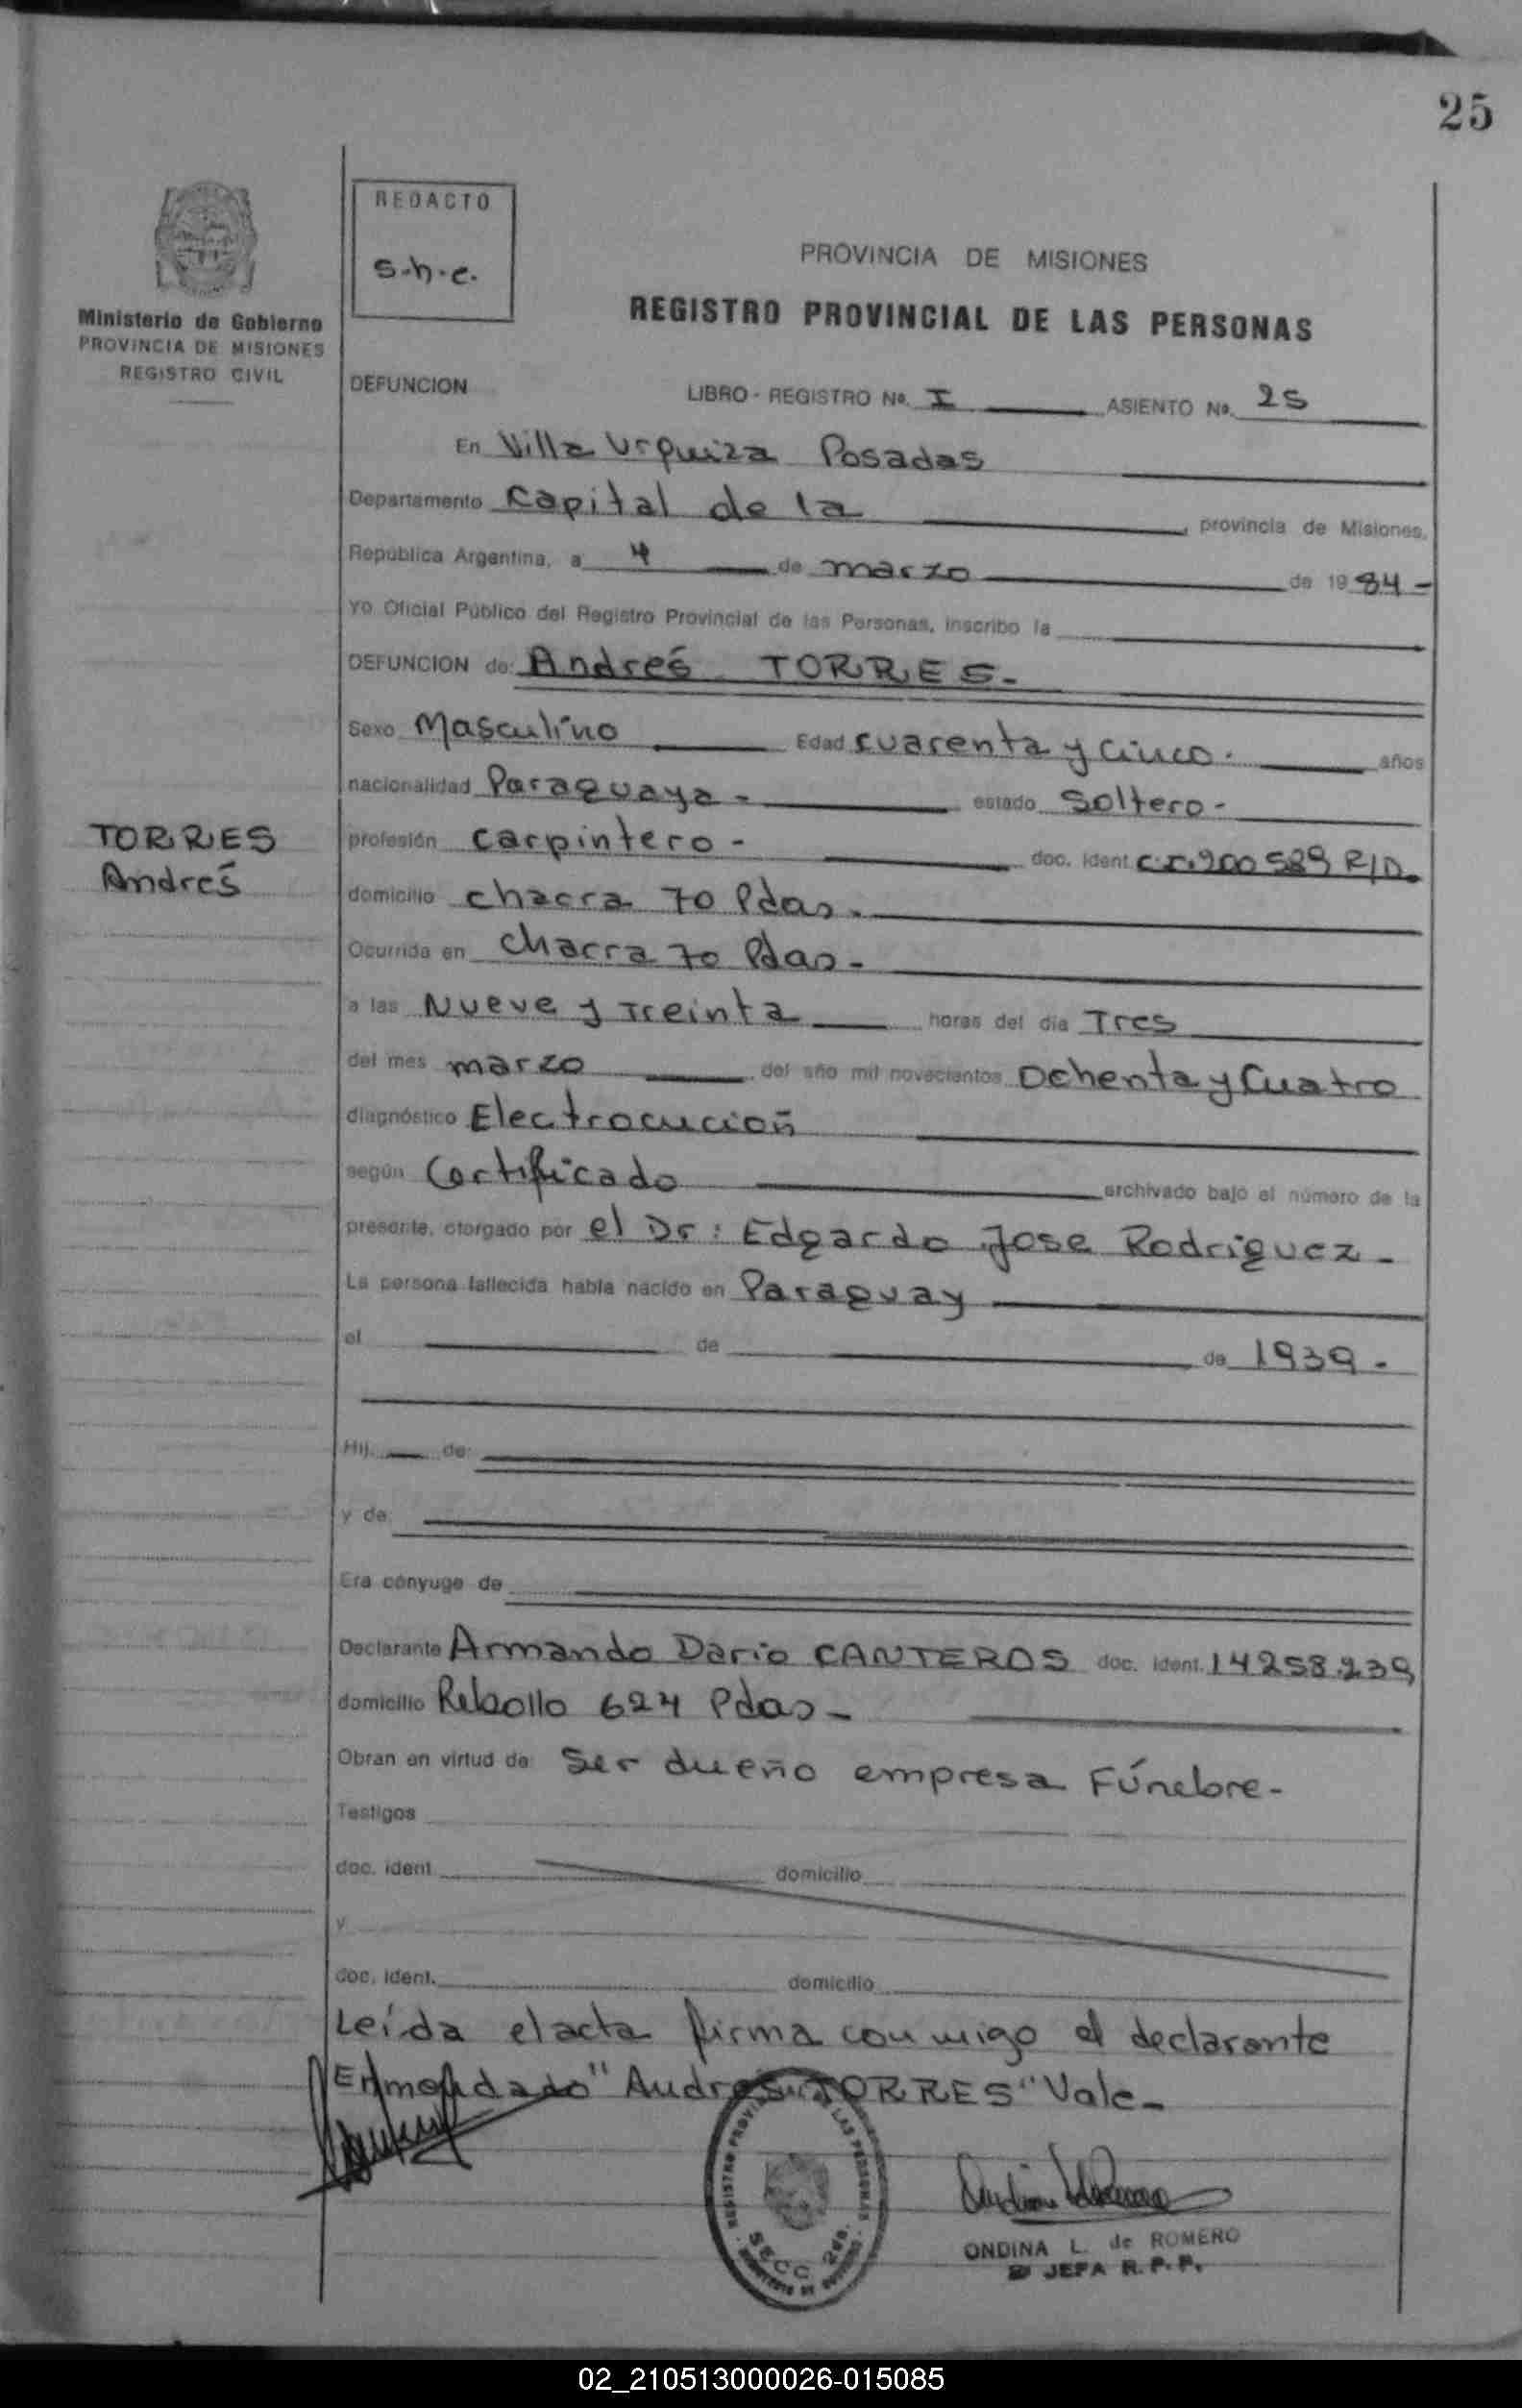 25
REDACTO
s.h.c.
Ministerio de Gobierno
PROVINCIA DE MISIONES
REGISTRO CIVIL
PROVINCIA DE MISIONES
REGISTRO PROVINCIAL DE LAS PERSONAS
DEFUNCION LIBRO - REGISTRO Nº. I ASIENTO Nº. 25
En Villa Urquiza Posadas
Departamento Capital de la , provincia de Misiones,
República Argentina, a 4 de marzo de 1984 -
Yo Oficial Público del Registro Provincial de las Personas, inscribo la
DEFUNCION de: Andrés TORRES.-
Sexo Masculino Edad cuarenta y cinco.- años
nacionalidad Paraguaya - estado Soltero -
TORRES
Andrés
profesión carpintero - doc. ident. C.I. 900 589 R/D.
domicilio chacra 70 Pdas.-
Ocurrida en chacra 70 Pdas -
a las Nueve y Treinta horas del día Tres
del mes marzo del año mil novecientos Ochenta y Cuatro
diagnóstico Electrocución
según Certificado archivado bajo el número de la
presente, otorgado por el Dr: Edgardo Jose Rodriguez -
La persona fallecida había nacido en Paraguay
el de de 1939 -
Hij de:
y de:
Era cónyuge de
Declarante Armando Dario CANTEROS doc. ident. 14258.239
domicilio Rebollo 624 Pdas -
Obran en virtud de: Ser dueño empresa Fúnebre -
Testigos
doc. ident. domicilio
y
doc. ident. domicilio
Leída el acta firma conmigo el declarante
Enmendado "Andres TORRES" Vale -
REGISTRO PROVINCIAL DE LAS PERSONAS
SECC. 2da.
MINISTERIO DE GOBIERNO
ONDINA L. de ROMERO
JEFA R.P.P.
02_210513000026-015085